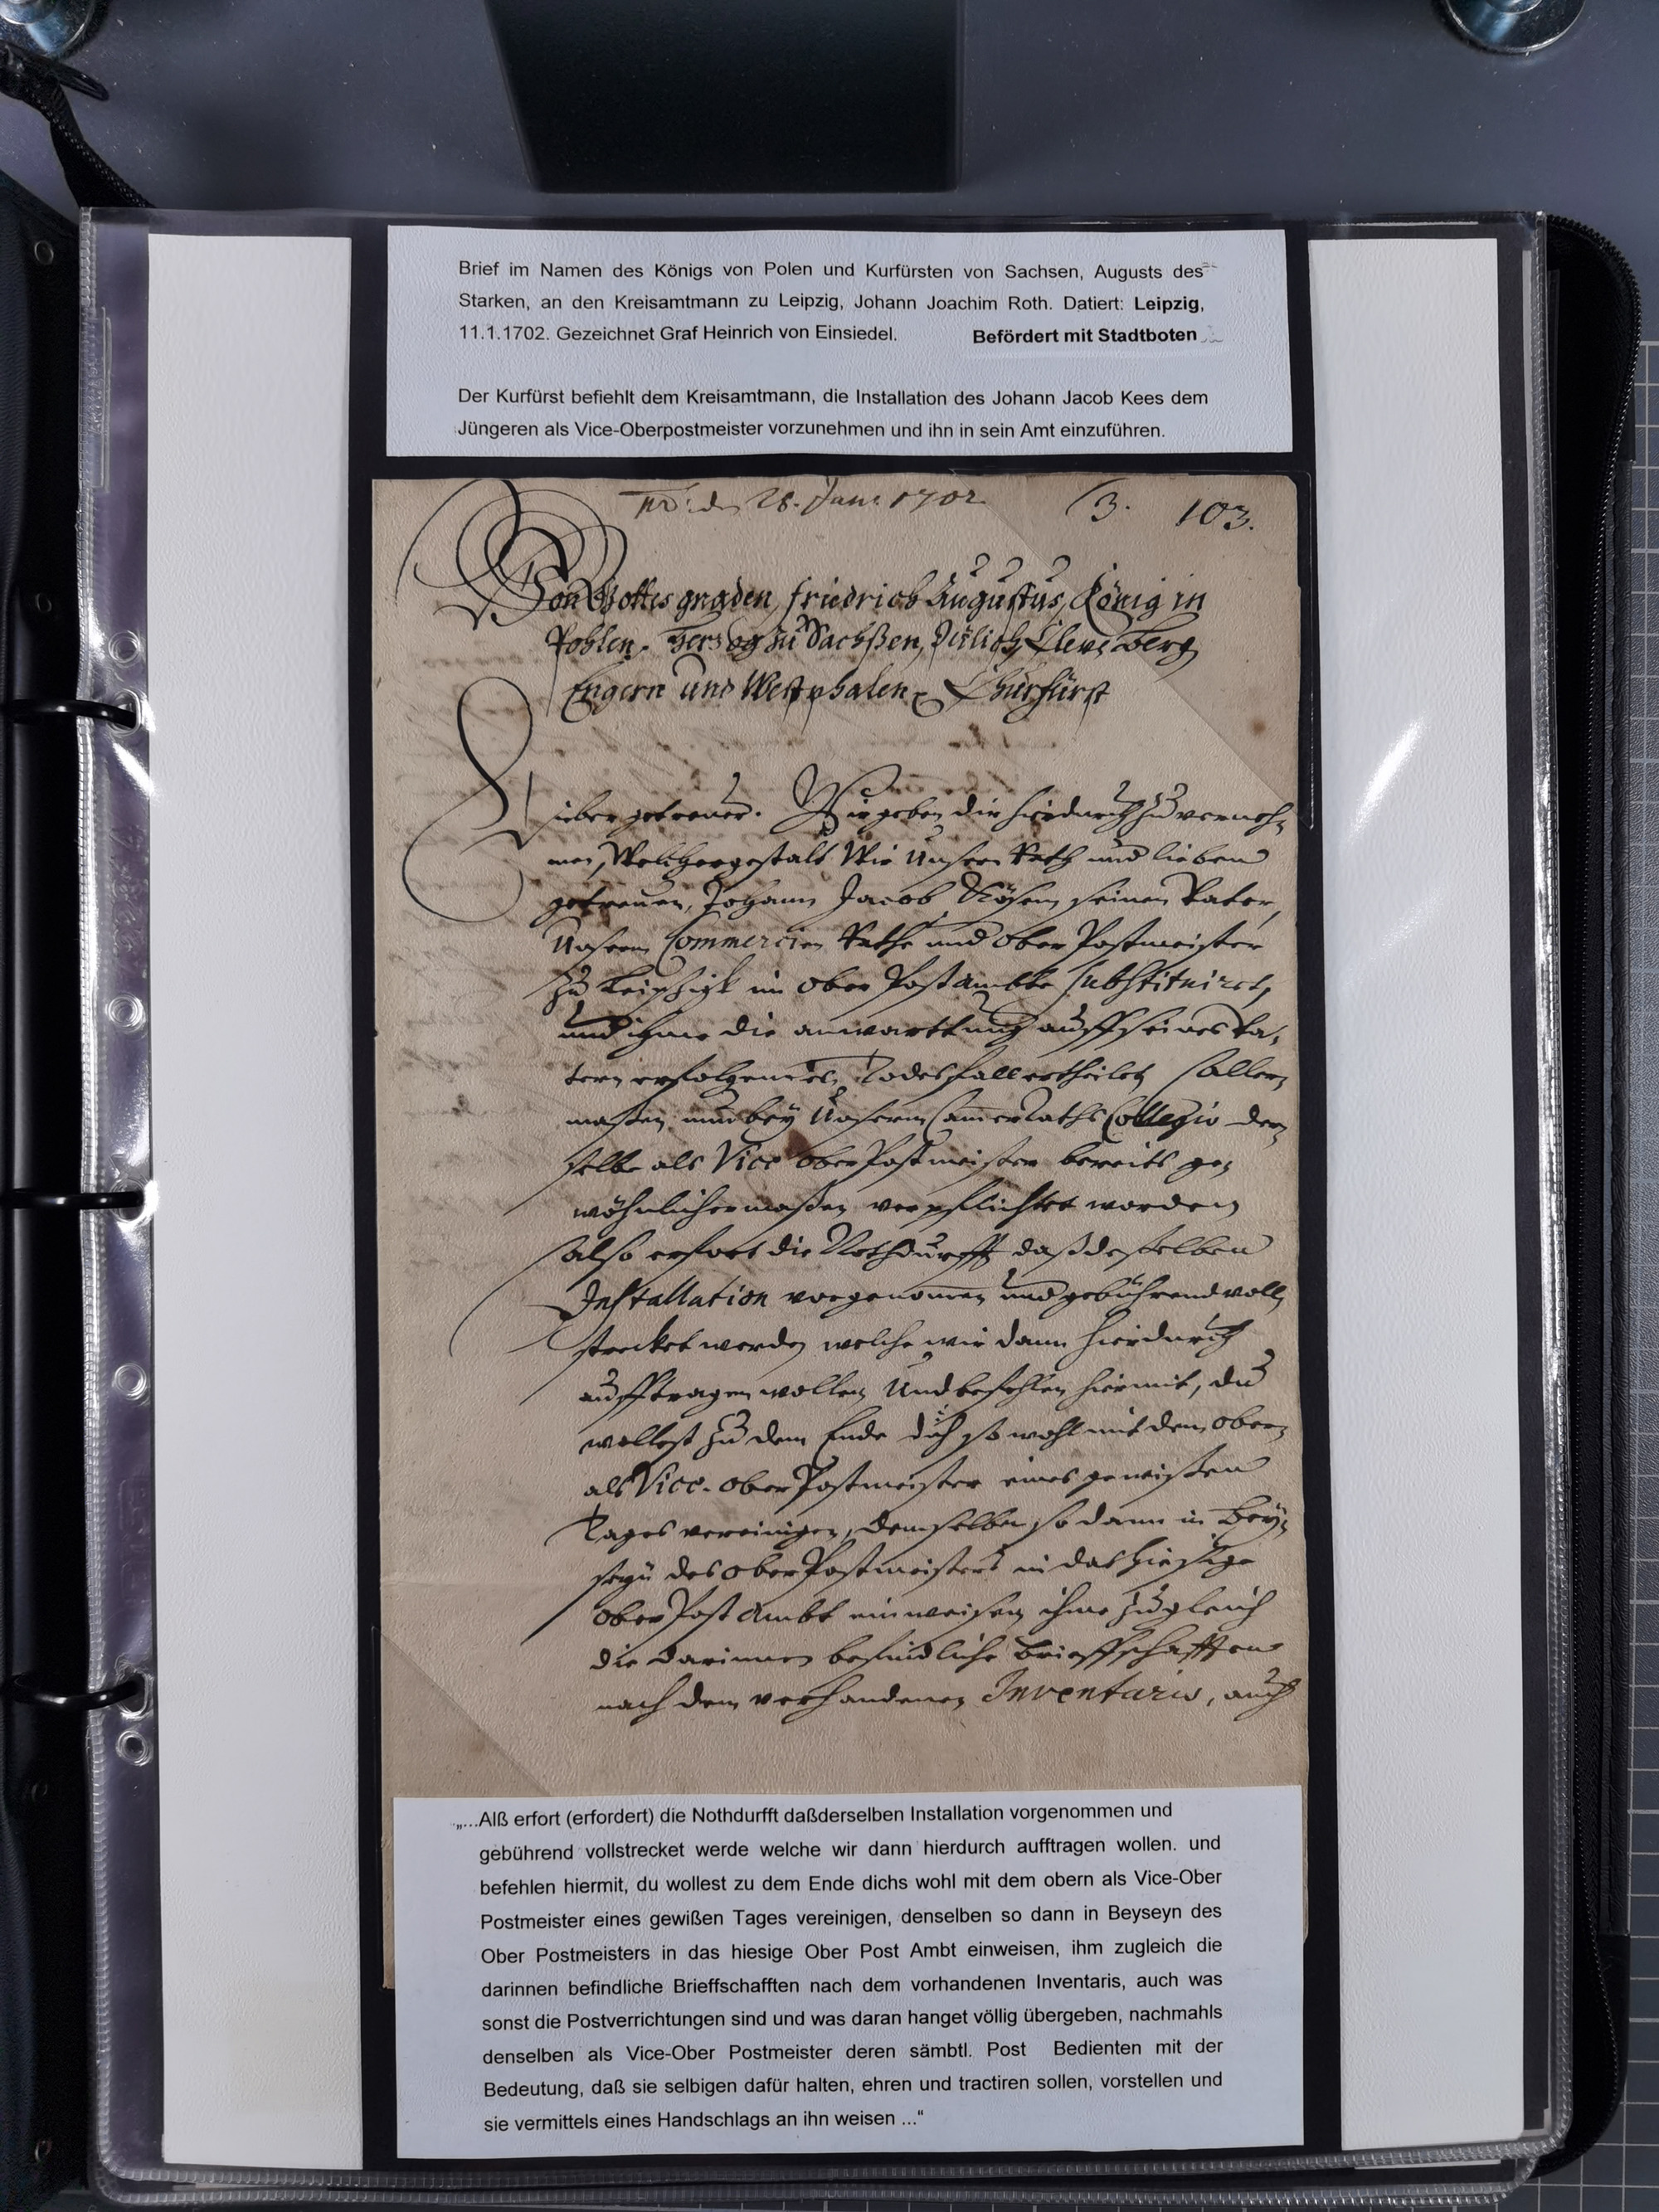 Brief im Namen des Königs von Polen und Kurfürsten von Sachsen, Augusts des
Starken, an den Kreisamtmann zu Leipzig, Johann Joachim Roth. Datiert: Leipzig,
11.1.1702. Gezeichnet Graf Heinrich von Einsiedel. Befördert mit Stadtboten
Der Kurfürst befiehlt dem Kreisamtmann, die Installation des Johann Jacob Kees dem
Jüngeren als Vice-Oberpostmeister vorzunehmen und ihn in sein Amt einzuführen.
28. Jan: 1702 3. 103.
Von Gottes gnaden, Friedrich Augustus, König in
Pohlen, Herzog zu Sachßen, Jülich, Cleve, Berg,
Engern und Westphalen, Churfürst
Lieber getreuer. Wir geben dir hierdurch zu verneh-
men, Welchergestalt Wir Unsern Rath und lieben
getreuen, Johann Jacob seinen Vater,
Unserm Commercien Rathe und Ober Postmeister
zu Leipzigk im Ober Post Ambte substituiret,
und ihme die anwarttung auff seines Va-
tern erfolgenden Todesfall ertheilet, Aller-
maßen nun bey Unserm Cammer Raths Collegio der-
selbe als Vice Ober Postmeister bereits ge-
wöhnlichermaßen verpflichtet worden
also erfort die Nothdurfft daß deßelben
Installation vorgenommen und gebührend voll-
strecket werde, welche wir dann hierdurch
aufftragen wollen, Und befehlen hiermit, du
wollest zu dem Ende dich so wohl mit dem Ober-
als Vice-Ober Postmeister eines gewißen
Tages vereinigen, denselben so dann in Bey-
seyn des Ober Postmeisters in das hiesige
Ober Post Ambt einweisen, ihme zugleich
die darinnen befindliche Brieffschafften
nach dem verhandenen Inventario, auch
„...Alß erfort (erfordert) die Nothdurfft daßderselben Installation vorgenommen und
gebührend vollstrecket werde welche wir dann hierdurch aufftragen wollen. und
befehlen hiermit, du wollest zu dem Ende dichs wohl mit dem obern als Vice-Ober
Postmeister eines gewißen Tages vereinigen, denselben so dann in Beyseyn des
Ober Postmeisters in das hiesige Ober Post Ambt einweisen, ihm zugleich die
darinnen befindliche Brieffschafften nach dem vorhandenen Inventaris, auch was
sonst die Postverrichtungen sind und was daran hanget völlig übergeben, nachmahls
denselben als Vice-Ober Postmeister deren sämbtl. Post Bedienten mit der
Bedeutung, daß sie selbigen dafür halten, ehren und tractiren sollen, vorstellen und
sie vermittels eines Handschlags an ihn weisen ...“